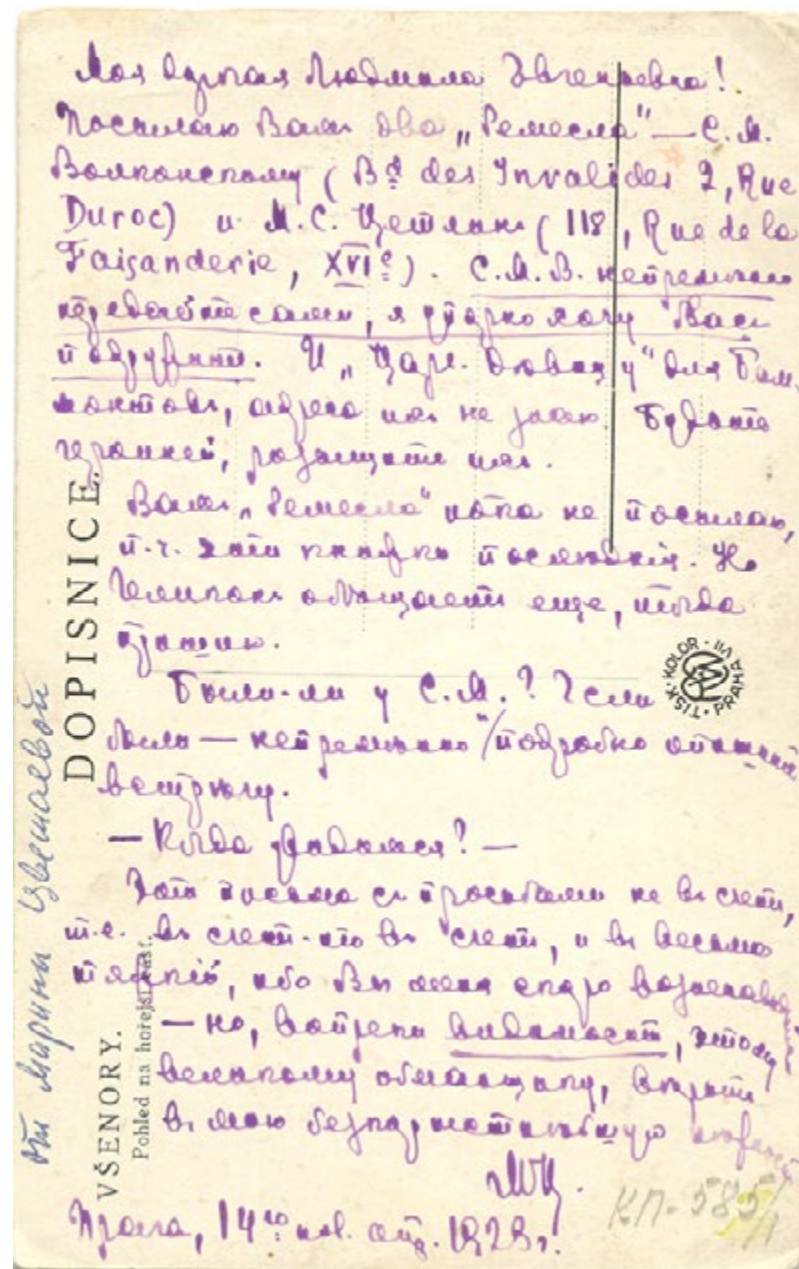 Моя дорогая Людмила Евгеньевна!
Посылаю Вам два „Ремесла" — С.М.
Волконскому (Bd des Invalides 2, Rue
Duroc) и М.С. Цетлин (118, Rue de la
Faisanderie, XVIe). С.М.В. непременно
передайте сами, я упорно хочу Вас
подружить. И „Царь-Девицу" для Баль-
монтовъ, адреса ихъ не знаю. Будьте
разыщите ихъ.
Вамъ „Ремесла" пока не посылаю,
п.ч. эти книги последнiя. Но
Геликонъ обещаетъ еще, тогда
пришлю.
Были-ли у С.М.? Если
были — непременно подробно опишите
встречу.
— Когда увидимся? —
Эти письма съ просьбами не въ счетъ,
т.е. въ счетъ-то въ счетъ, и въ весьма
тяжкiй, ибо Вы меня скоро возненавидите
— но, вопреки видимости, этому
великому обманщику, верьте
въ мою любовь
МЦ.
Прага, 14го нов. апр. 1923г.
DOPISNICE.
VŠENORY.
Pohled na hořejší část.
От Марины Цветаевой
KOLOR · TISK · PRAHA VII
КП-585/1